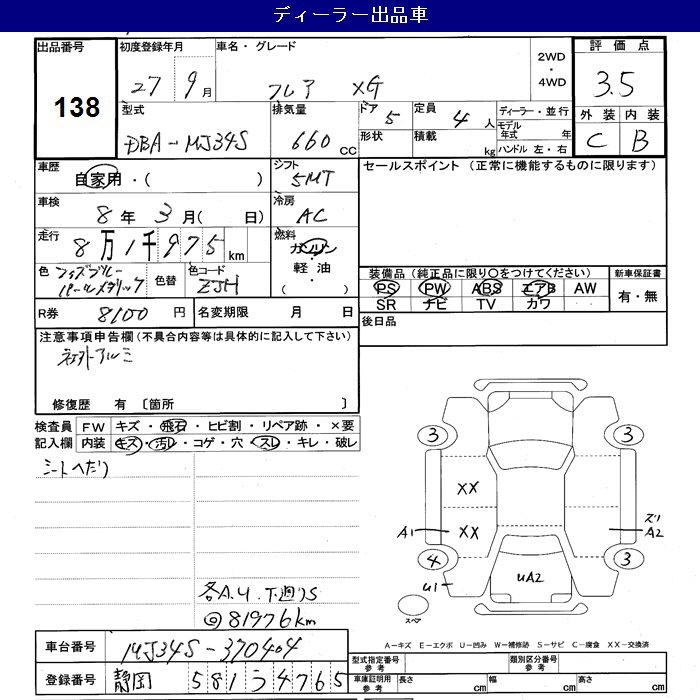 ディーラー出品車
出品番号
138
初度登録年月
27 9月
車名・グレード
フレア XG
2WD
・
4WD
評価点
3.5
外装 内装
C B
型式
DBA-MJ34S
排気量
660 cc
ドア 5
形状
定員 4 人
積載 kg
ディーラー・並行
モデル年式 年
ハンドル 左・右
車歴
自家用・( )
シフト
5MT
セールスポイント (正常に機能するものに限ります)
車検
8年 3月( 日)
冷房
AC
走行
8万1千975 km
燃料
ガソリン
・
軽油
・
( )
色
パールメタリック
色替
色コード
ZJH
装備品(純正品に限り○をつけてください)
PS PW ABS エアB AW
SR ナビ TV カワ
新車保証書
有・無
R券 8100 円
名変期限 月 日
後日品
注意事項申告欄(不具合内容等は具体的に記入して下さい)
社外アルミ
修復歴 有 〔箇所 〕
検査員
記入欄
FW キズ・飛石・ヒビ割・リペア跡・×要
内装 キズ・汚レ・コゲ・穴・スレ・キレ・破レ
シートへたり
各A.U.下廻りS
@81976km
3 3
XX
XX
A1
ズリ
A2
4 3
U1
UA2
スペア
A-キズ E-エクボ U-凹み W-補修跡 S-サビ C-腐食 XX-交換済
車台番号
MJ34S-370404
登録番号
静岡 581 う 4765
型式指定番号
参考
類別区分番号
参考
車庫証明用
参考
長さ cm
幅 cm
高さ cm